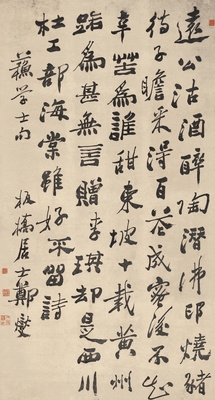 遠公沽酒醉陶潛佛印燒豬
待子瞻采得百花成蜜後不知
辛苦為誰甜東坡十載黃州
路為甚無言贈李琪却是西川
杜工部海棠雖好不留詩
蘓学士句 板橋居士鄭燮